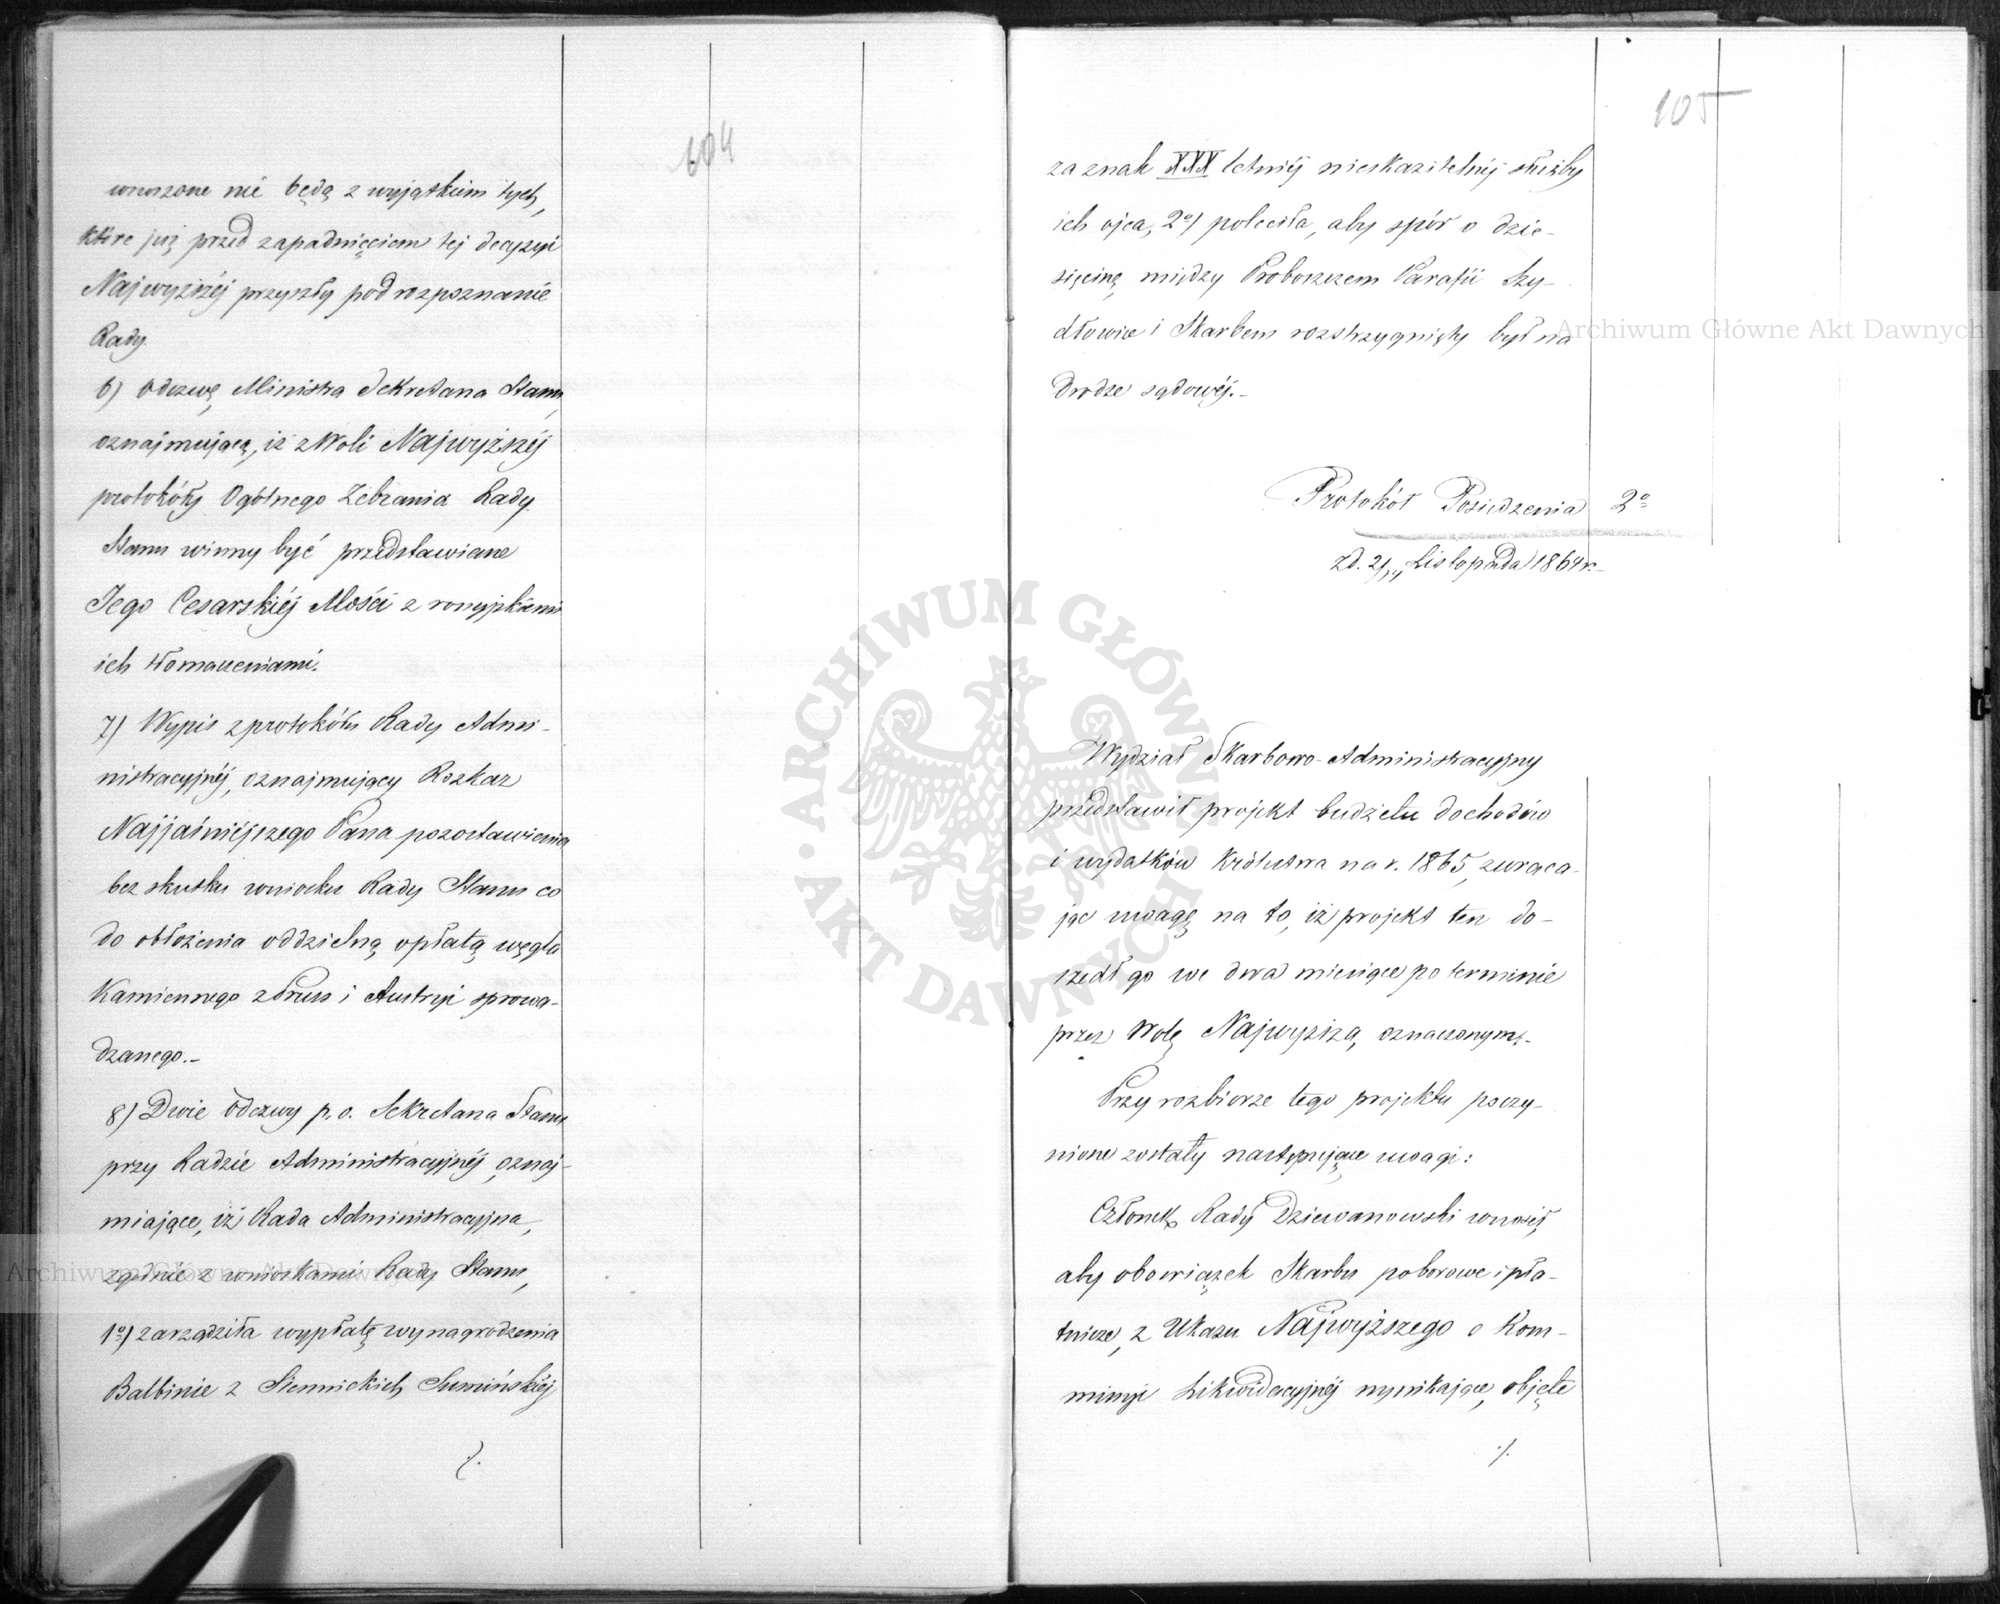 104
wnoszone nie będą z wyjątkiem tych,
które już przed zapadnięciem tej decyzyi
Najwyższéj przyszły pod rozpoznanie
Rady.
6) Odezwę Ministra Sekretarza Stanu,
oznajmującą, iż z Woli Najwyższéj
protokóły Ogólnego Zebrania Rady
Stanu winny być przedstawiane
Jego Cesarskiéj Mości z rossyjskiemi
ich tłomaczeniami.
7) Wypis z protokółu Rady Admi-
nistracyjnéj, oznajmujący Rozkaz
Najjaśniéjszego Pana pozostawienia
bez skutku wniosku Rady Stanu co
do obłożenia oddzielną opłatą węgla
Kamiennego z Pruss i Austryi sprowa-
dzanego.-
8) Dwie Odezwy p. o. Sekretarza Stanu
przy Radzie Administracyjnéj, oznaj-
miające, iż Rada Administracyjna,
zgodnie z wnioskami Rady Stanu,
1º) zarządziła wypłatę wynagrodzenia
Balbinie z Siennickich Sumińskiéj
./.
105
za znak XXX letniéj nieskazitelnéj służby
ich ojca, 2º) poleciła, aby spór o dzie-
sięcinę między Proboszczem Parafii Szy-
dłowiec i Skarbem rozstrzygnięty był na
drodze sądowéj.-
Protokół Posiedzenia 2º
z d. 21 „ Listopada 1864 r.-
Wydział Skarbowo-Administracyjny
przedstawił projekt budżetu dochodów
i wydatków Królestwa na r. 1865, zwraca-
jąc uwagę na to, iż projekt ten do-
szedł go we dwa miesiące po terminie
przez Wolę Najwyższą oznaczonym.-
Przy rozbiorze tego projektu poczy-
nione zostały następujące uwagi:
Członek Rady Dziewanowski wnosił,
aby obowiązek Skarbu poborowe i pła-
tnicze, z Ukazu Najwyższego o Kom-
missyi Likwidacyjnéj wynikające, objęte
./.
Archiwum Główne Akt Dawnych
Archiwum Główne Akt Dawnych
ARCHIWUM GŁÓWNE · AKT DAWNYCH ·